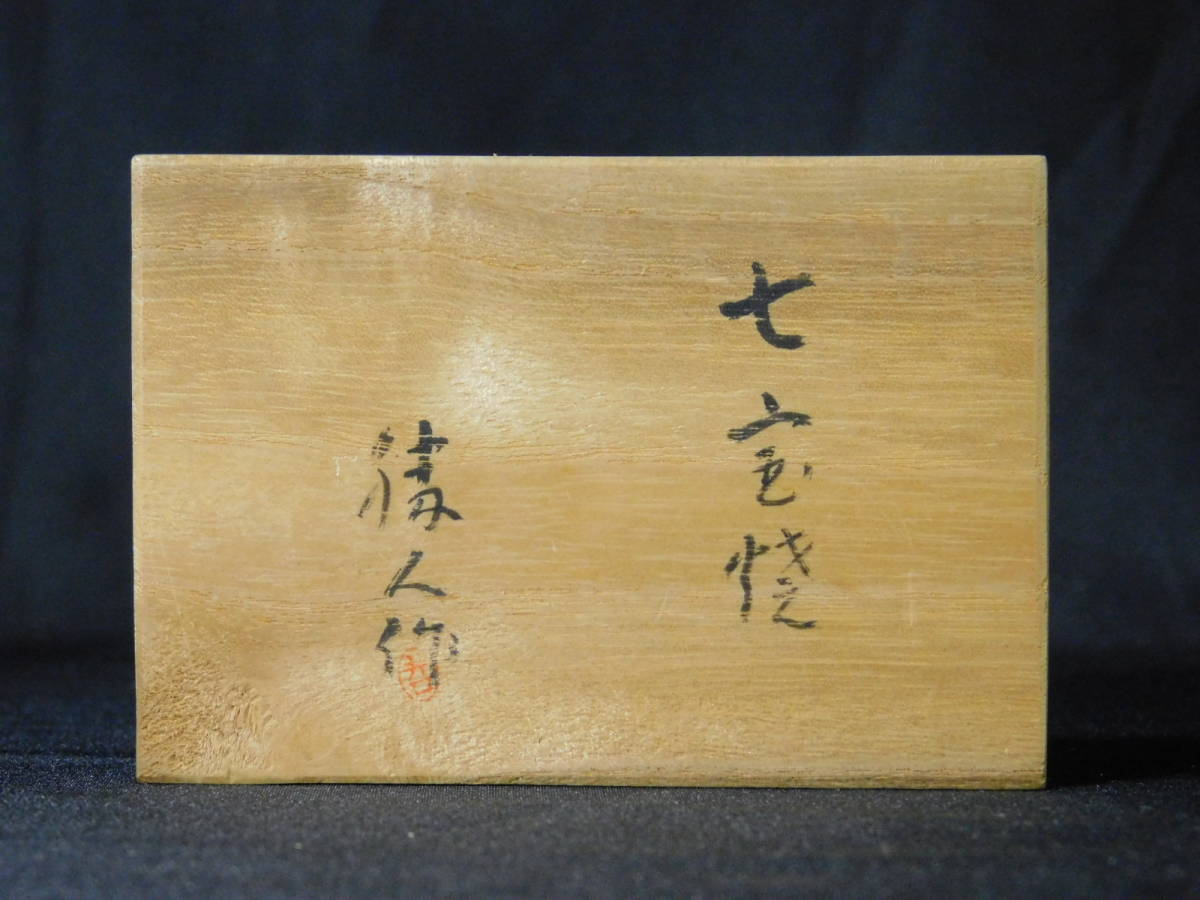 七宝焼
勝人作